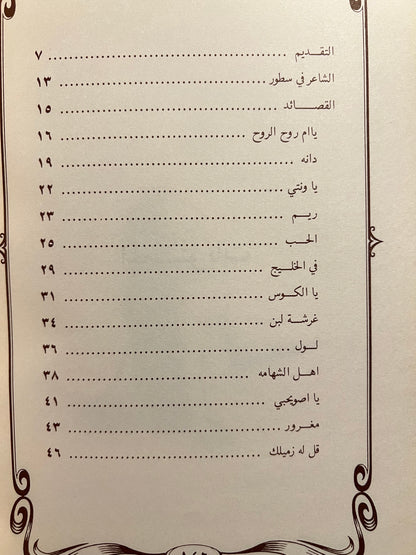 التقديم ........ ٧
الشاعر في سطور ........ ١٣
القصائد ........ ١٥
يا ام روح الروح ........ ١٦
دانه ........ ١٩
يا ونتي ........ ٢٢
ريم ........ ٢٣
الحب ........ ٢٥
في الخليج ........ ٢٩
يا الكوس ........ ٣١
غرشة لبن ........ ٣٤
لول ........ ٣٦
اهل الشهامه ........ ٣٨
يا اصويحبي ........ ٤١
مغرور ........ ٤٣
قل له زميلك ........ ٤٦